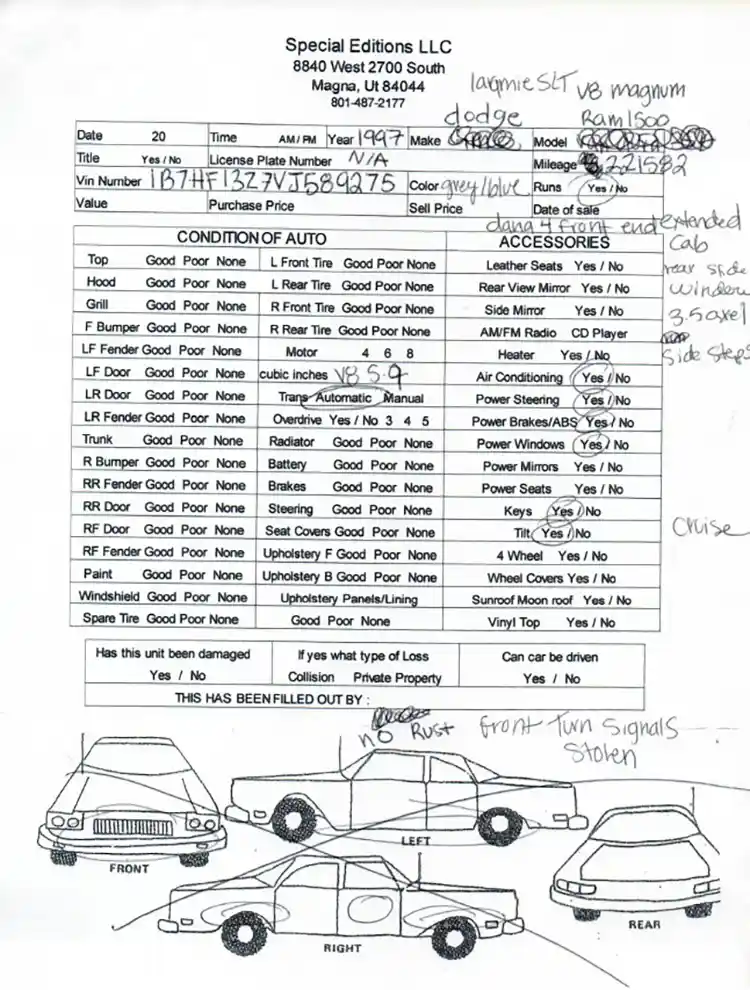 Special Editions LLC
8840 West 2700 South
Magna, Ut 84044
801-487-2177
larqmie SLT V8 magnum
dodge Ram1500
Date 20 Time AM / PM Year 1997 Make Model
Title Yes / No License Plate Number N/A Mileage 221582
Vin Number 1B7HF13Z7VJ589275 Color grey/blue Runs Yes / No
Value Purchase Price Sell Price Date of sale
dana 4 front end extended
Cab
rear side
window
3.5 axel
side steps
CONDITION OF AUTO ACCESSORIES
Top Good Poor None L Front Tire Good Poor None Leather Seats Yes / No
Hood Good Poor None L Rear Tire Good Poor None Rear View Mirror Yes / No
Grill Good Poor None R Front Tire Good Poor None Side Mirror Yes / No
F Bumper Good Poor None R Rear Tire Good Poor None AM/FM Radio CD Player
LF Fender Good Poor None Motor 4 6 8 Heater Yes / No
LF Door Good Poor None cubic inches V8 5.9 Air Conditioning Yes / No
LR Door Good Poor None Trans Automatic Manual Power Steering Yes / No
LR Fender Good Poor None Overdrive Yes / No 3 4 5 Power Brakes/ABS Yes / No
Trunk Good Poor None Radiator Good Poor None Power Windows Yes / No
R Bumper Good Poor None Battery Good Poor None Power Mirrors Yes / No
RR Fender Good Poor None Brakes Good Poor None Power Seats Yes / No
RR Door Good Poor None Steering Good Poor None Keys Yes / No
RF Door Good Poor None Seat Covers Good Poor None Tilt Yes / No Cruise
RF Fender Good Poor None Upholstery F Good Poor None 4 Wheel Yes / No
Paint Good Poor None Upholstery B Good Poor None Wheel Covers Yes / No
Windshield Good Poor None Upholstery Panels/Lining Sunroof Moon roof Yes / No
Spare Tire Good Poor None Good Poor None Vinyl Top Yes / No
Has this unit been damaged If yes what type of Loss Can car be driven
Yes / No Collision Private Property Yes / No
THIS HAS BEEN FILLED OUT BY :
no Rust front Turn Signals
Stolen
LEFT
FRONT
REAR
RIGHT